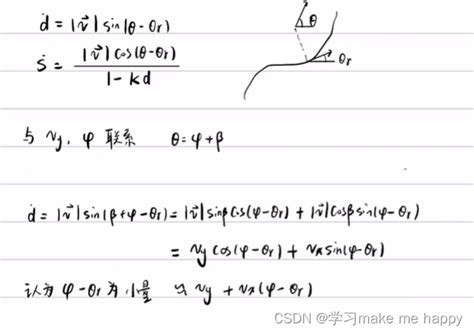 ḋ = |v⃗| sin(θ-θr)
ṡ = |v⃗| cos(θ-θr) / 1-kd
θ
θr
与 vy, φ 联系 θ=φ+β
ḋ = |v⃗| sin(β+φ-θr) = |v⃗| sinβ cos(φ-θr) + |v⃗| cosβ sin(φ-θr)
= vy cos(φ-θr) + vx sin(φ-θr)
认为 φ-θr 为 小量 ≈ vy + vx(φ-θr)
CSDN @学习make me happy